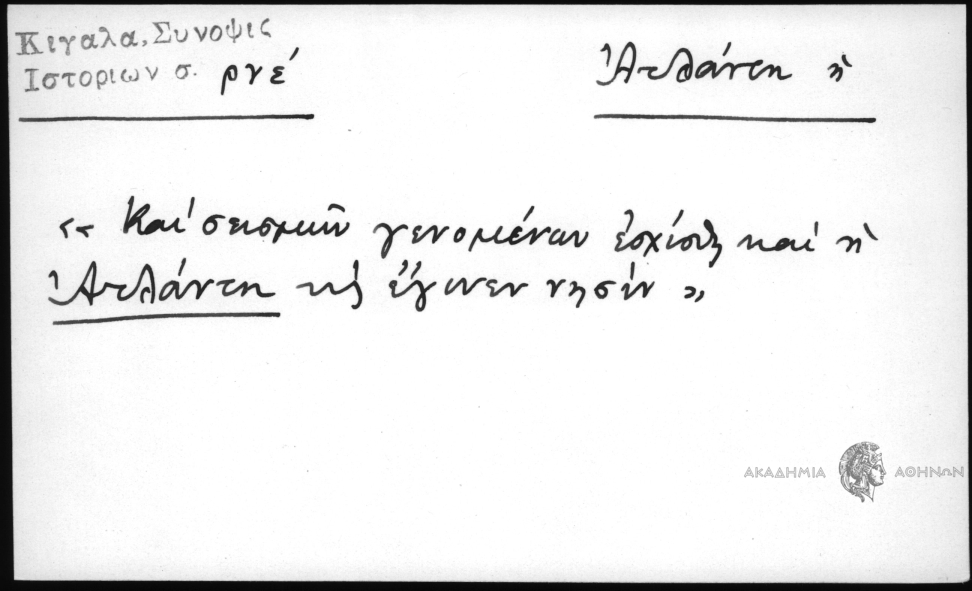 Κιγαλα, Συνοψις
Ιστοριων σ. ρνε΄
Ἀτλάντη ἡ
«Καὶ σεισμῶν γενομένων ἐσχίσθη καὶ ἡ
Ἀτλάντη κὶ ἔγινεν νησίν»
ΑΚΑΔΗΜΙΑ ΑΘΗΝΩΝ